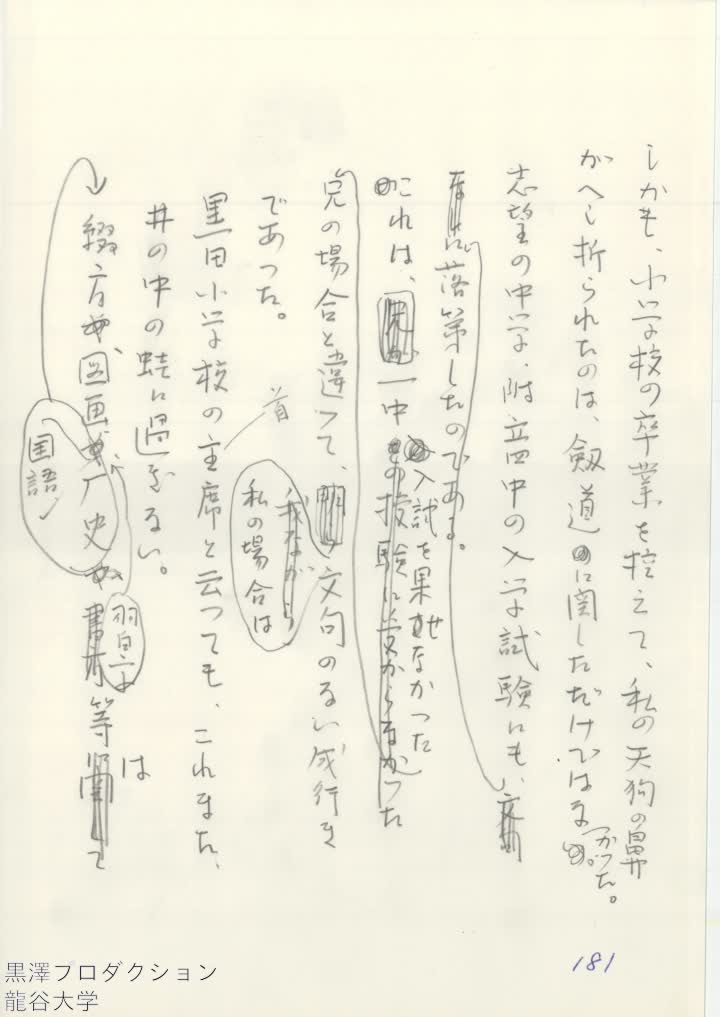 しかも、小学校の卒業を控えて、私の天狗の鼻
がへし折られたのは、剱道に関しただけではな
かつた。
志望の中学、府立四中の入学試験にも、
落第したのである。
これは、一中の
入試を果せなかつた
兄の場合と違って、文句のない成行き
私の場合は
であつた。
黒田小学校の主席と云つても、これまた、
首
井の中の蛙に過ぎない。
綴方、図画、歴史
国語
習字
等
は
181
黒澤プロダクション
龍谷大学